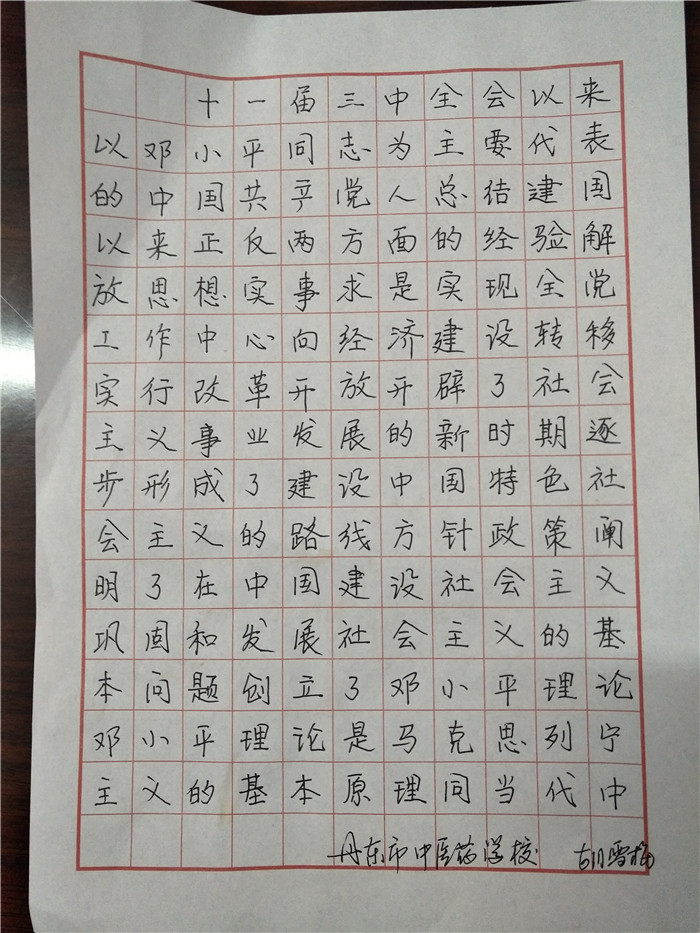 十一届三中全会以来
以邓小平同志为主要代表
的中国共产党人总结建国
以来正反两方面的经验解
放思想实事求是实现全党
工作中心向经济建设转移
实行改革开放开辟了社会
主义事业发展的新时期逐
步形成了建设中国特色社
会主义的路线方针政策阐
明了在中国建设社会主义
巩固和发展社会主义的基
本问题创立了邓小平理论
邓小平理论是马克思列宁
主义的基本原理同当代中
丹东市中医药学校 胡雪梅